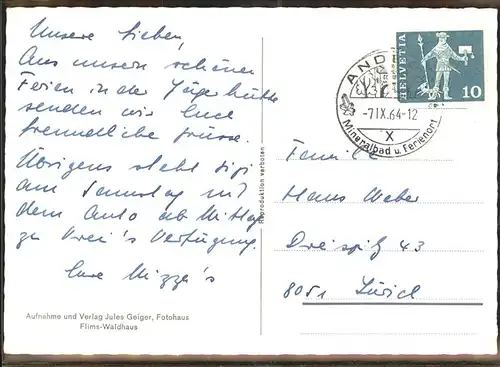 Unsere Lieben,
Aus unsern schönen
Ferien in der Jägerhütte
senden wir Euch
freundliche Grüsse.
Übrigens steht
am Samstag mit
dem Auto ab Mittag
zu Verfügung.
Eure
Aufnahme und Verlag Jules Geiger, Fotohaus
Flims-Waldhaus
Reproduktion verboten
AND
-7.IX.64-12
X
Mineralbad u. Ferienort
HELVETIA
10
Familie
Hans Weber
Dreispitz 43
8051 Zürich